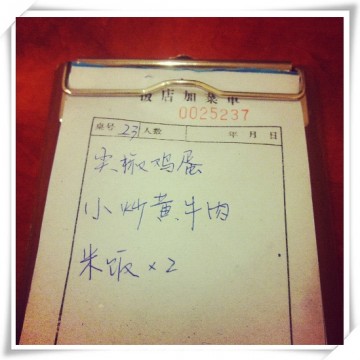 饭店加菜单
0025237
桌号 23 人数 年 月 日
尖椒鸡蛋
小炒黄牛肉
米饭×2